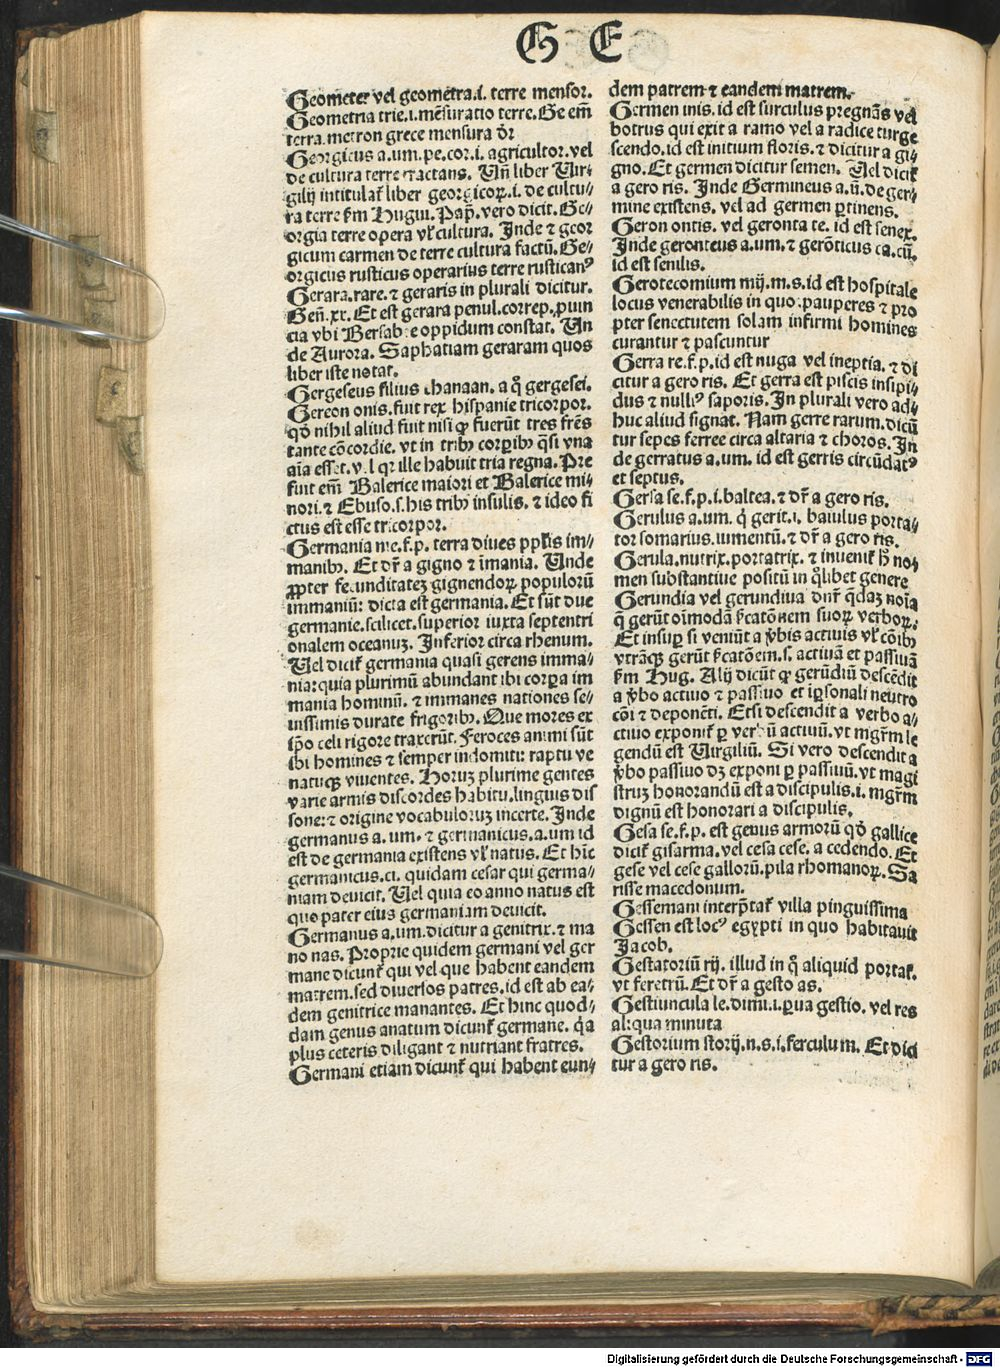 G E
Geometer vel geometra.i. terre mensor.
Geometria trie.i. mẽsuratio terre. Ge em̃
terra. metron grece mensura dr̄
Georgicus a.um.pe.cor.i. agricultor. vel
de cultura terre tractans. Vn̄ liber Vir⸗
gilij intitulat᷑ liber georgicoꝝ.i. de cultu⸗
ra terre ẜm Hugui. Pap̄. vero dicit. Ge⸗
orgia terre opera vl᷑ cultura. Inde ⁊ geor
gicum carmen de terre cultura factũ. Ge⸗
orgicus rusticus operarius terre rusticanꝰ
Gerara.rare. ⁊ geraris in plurali dicitur.
Gen̄.xx. Et est gerara penul.correp.ꝓuin
cia vbi Bersabee oppidum constat. Vn
de Aurora. Saphatiam geraram quos
liber iste notat.
Gergeseus filius chanaan. a q̄ gergesei.
Gereon onis.fuit rex hispanie tricorpor.
qđ nihil aliud fuit nisi ꝙ fuerũt tres frẽs
tante cõcordie. vt in tribꝫ corꝑibꝫ q̃si vna
aĩa esset. vel qꝛ ille habuit tria regna. Pre
fuit em̃ Balerice maiori et Balerice mi⸗
nori. ⁊ Ebuso.s.his tribꝫ insulis. ⁊ ideo fi
ctus est esse tricorpor.
Germania nie.f.p. terra diues ppl̃is im⸗
manibꝫ. Et dr̄ a gigno ⁊ ĩmania. Unde
ꝓpter fecunditatẽ gignendoꝝ populorũ
immaniũ: dicta est germania. Et sũt due
germanie.scilicet.superior iuxta septentri
onalem oceanuꝫ. Inferior circa rhenum.
Uel dicit᷑ germania quasi gerens imma⸗
nia: quia plurimũ abundant ibi corꝑa im
mania hominũ. ⁊ immanes nationes se⸗
uissimis durate frigoribꝫ. Que mores ex
ip̃o celi rigore traxerũt. Feroces animi sũt
ibi homines ⁊ semper indomiti: raptu ve
natuqꝫ viuentes. Horuꝫ plurime gentes
varie armis discordes habitu.linguis dis
sone: ⁊ origine vocabuloruꝫ incerte. Inde
germanus a.um. ⁊ germanicus.a.um id
est de germania existens vl᷑ natus. Et hĩc
germanicus.ci. quidam cesar qui germa⸗
niam deuicit. Uel quia eo anno natus est
quo pater eius germaniam deuicit.
Germanus a.um.dicitur a genitrix.⁊ ma
no nas. Proprie quidem germani vel ger
mane dicunt᷑ qui vel que habent eandem
matrem.sed diuersos patres.id est ab ea⸗
dem genitrice manantes. Et hinc quod⸗
dam genus anatum dicunt᷑ germane. q̇a
plus ceteris diligant ⁊ nutriant fratres.
Germani etiam dicunt᷑ qui habent eun⸗
dem patrem ⁊ eandem matrem.
Germen inis. id est surculus pregnãs vel
botrus qui exit a ramo vel a radice turge
scendo.id est initium floris. ⁊ dicitur a gi⸗
gno. Et germen dicitur semen. Uel dicit᷑
a gero ris. Inde Germineus a.ũ.de ger⸗
mine existens. vel ad germen ꝑtinens.
Geron ontis. vel geronta te. id est senex.
Inde geronteus a.um. ⁊ gerõticus ca.cũ.
id est senilis.
Gerotecomium mij.m.s.id est hospitale
locus venerabilis in quo.pauperes ⁊ pro
pter senectutem solam infirmi homines
curantur ⁊ pascuntur
Gerra re.f.p.id est nuga vel ineptia. ⁊ di
citur a gero ris. Et gerra est piscis insipi⸗
dus ⁊ nulliꝰ saporis. In plurali vero ad⸗
huc aliud signat. Nam gerre rarum.dicũ
tur sepes ferree circa altaria ⁊ choros. In
de gerratus a.um. id est gerris circũdatꝰ
et septus.
Gersa se.f.p.i.baltea. ⁊ dr̄ a gero ris.
Gerulus a.um. q̇ gerit.i. baiulus porta⸗
tor somarius.iumentũ.⁊ dr̄ a gero ris.
Gerula.nutrix.portatrix. ⁊ inuenit᷑ h̄ no⸗
men substantiue positũ in q̃libet genere
Gerundia vel gerundiua dn̄r q̃daꝫ noĩa
q̄ gerũt oĩmodã ẜcatõnem suoꝝ verboꝝ.
Et insuꝑ si veniũt a v̾bis actiuis vl᷑ cõibꝫ
vtrãqꝫ gerũt ẜcatõem.s. actiuã et passiuã
ẜm Hug. Alij dicũt ꝙ gerũdiũ descẽdit
a v̾bo actiuo ⁊ passiuo et iꝑsonali neutro
cõi ⁊ deponẽti. Etsi descendit a verbo a⸗
ctiuo exponit᷑ ꝑ verbũ actiuũ.vt mgr̄m le
gendũ est Virgiliũ. Si vero descendit a
v̾bo passiuo dꝫ exponi ꝑ passiuũ.vt magi
struꝫ honorandũ est a discipulis.i. mgr̄m
dignũ est honorari a discipulis.
Gesa se.f.p. est genus armorũ qđ gallice
dicit᷑ gisarma.vel cesa cese. a cedendo. Et
gese vel cese gallorũ.pila rhomanoꝝ. Sa
risse macedonum.
Gessemani interp̄tat᷑ villa pinguissima
Gessen est locꝰ egypti in quo habitauit
Jacob.
Gestatoriũ rij. illud in q̄ aliquid portat᷑.
vt feretrũ. Et dr̄ a gesto as.
Gestiuncula le.dimi.i.ꝑua gestio. vel res
aliqua minuta
Gestorium storij.n.s.i.ferculum. Et dici
tur a gero ris.
Digitalisierung gefördert durch die Deutsche Forschungsgemeinschaft - DFG